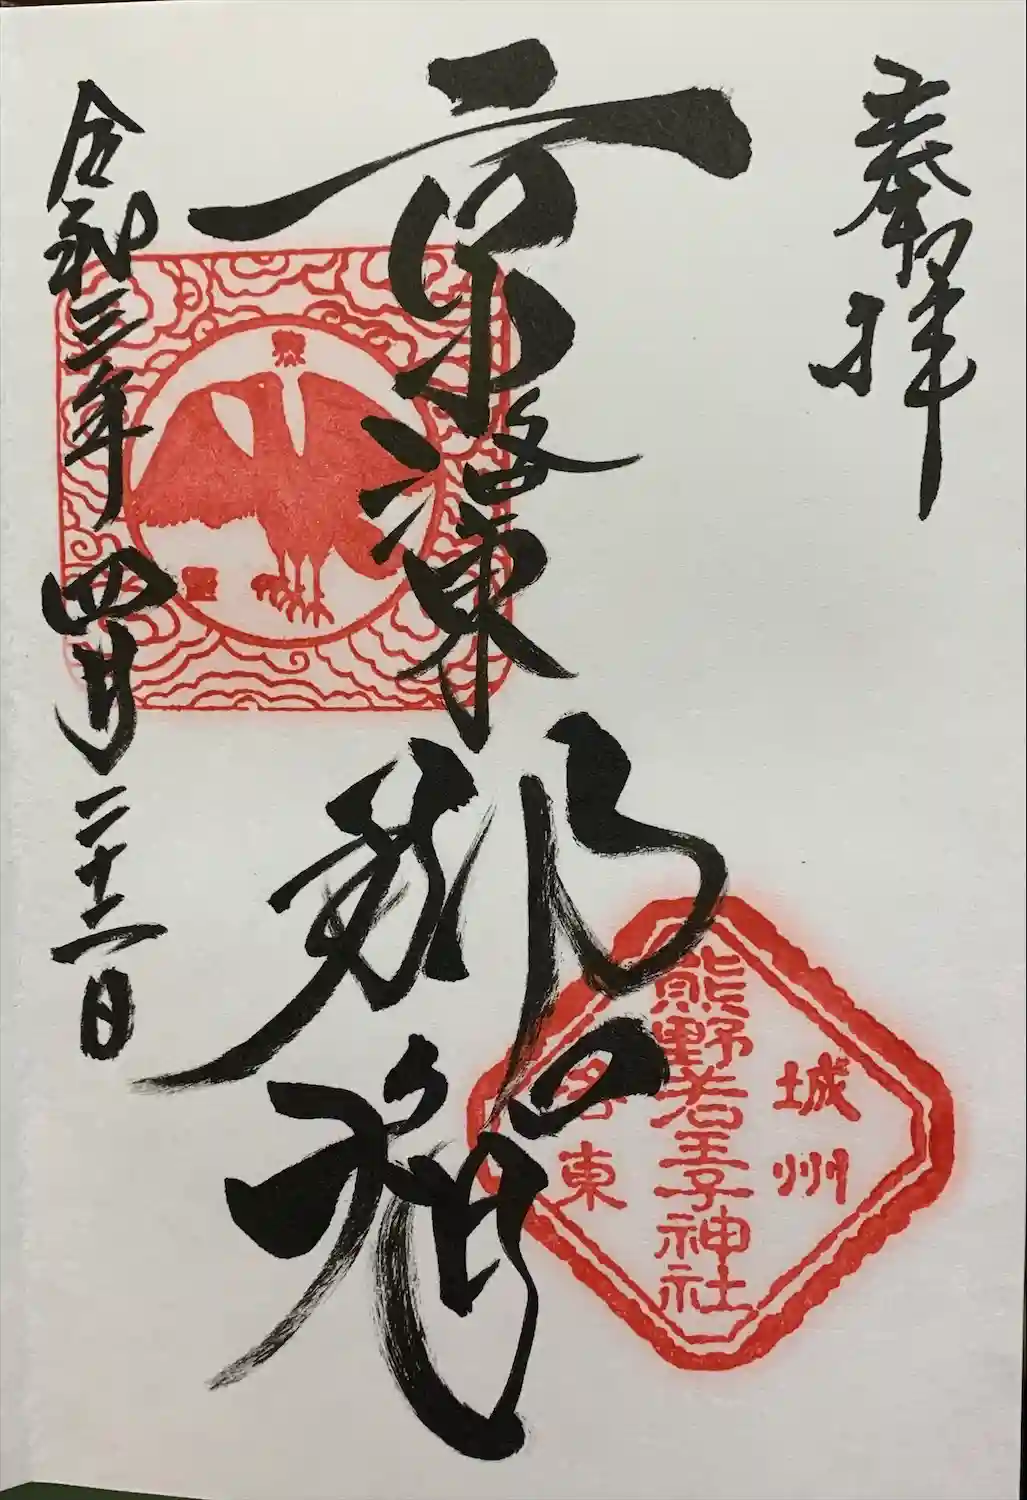 奉拝
京洛東 那智
城州
熊野若王子神社
洛東
令和三年四月二十二日
熊